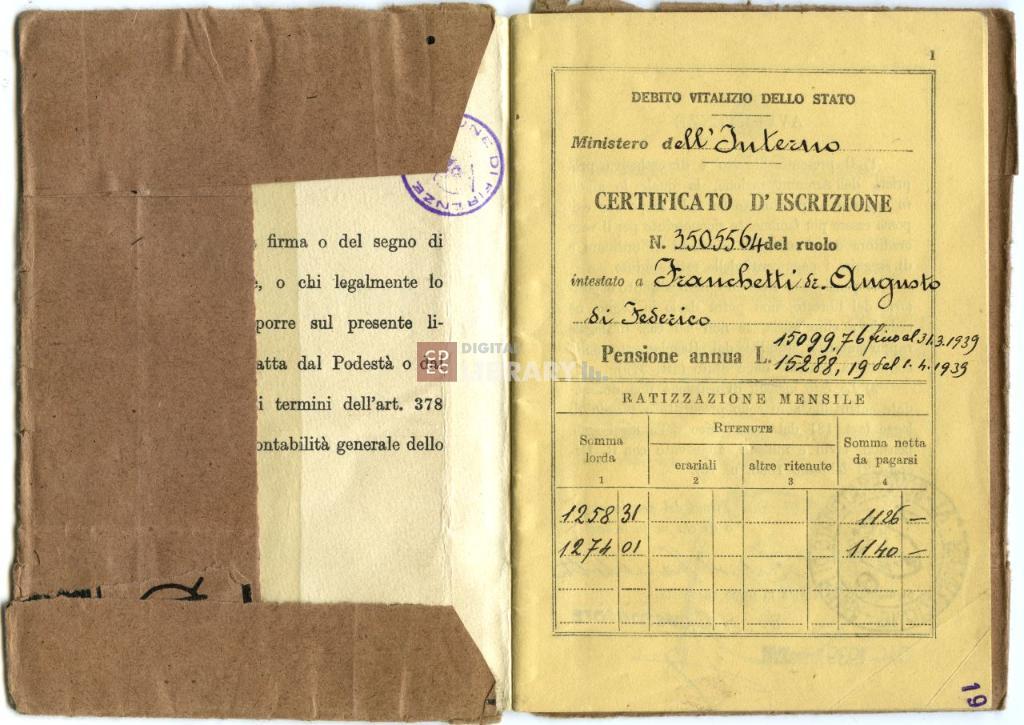 COMUNE DI FIRENZE
firma o del segno di
, o chi legalmente lo
porre sul presente li-
atta dal Podestà o dal
i termini dell'art. 378
ontabilità generale dello
CDEC DIGITAL LIBRARY
1
DEBITO VITALIZIO DELLO STATO
Ministero dell'Interno
CERTIFICATO D'ISCRIZIONE
N. 3505564 del ruolo
intestato a Franchetti dr. Augusto
di Federico
Pensione annua L. 15099,76 fino al 31.3.1939
15288,19 dal 1.4.1939
RATIZZAZIONE MENSILE
Somma lorda
RITENUTE
Somma netta da pagarsi
erariali
altre ritenute
1 2 3 4
1258 31 1126 —
1274 01 1140 —
19